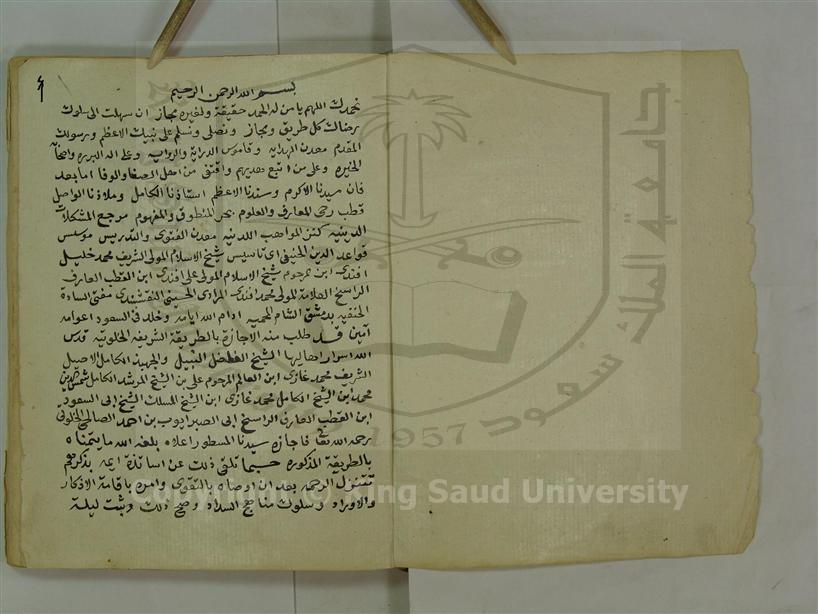 بسم الله الرحمن الرحيم
نحمدك اللهم يا من له الحمد حقيقة ولغيره مجاز ان سهلت الى سلوك
رضاك كل طريق ومجاز ونصلي ونسلم على نبيك الاعظم ورسولك
المقدم معدن الهدايه وقاموس الدراية والروايه وعلى اله البرره واصحابه
الخيره وعلى من اتبع هديهم واقتفى من اهل الصفا والوفا اما بعد
فان سيدنا الاكرم وسندنا الاعظم استاذنا الكامل وملاذنا الواصل
قطب رحى المعارف والعلوم بحر المنطوق والمفهوم مرجع المشكلات
الدينيه كنز المواهب اللدنيه معدن الفتوى والتدريس موسس
قواعد الدين الحنيفي اي تاسيس شيخ الاسلام المولى الشريف محمد خليل
افندي ابن مرحوم شيخ الاسلام المولى على افندي ابن القطب العارف
الراسخ العلامة المولى محمد افندي المرادي الحسيني النقشبندي مفتي السادة
الحنفيه بدمشق الشام المحميه ادام الله ايامه وخلد في السعود اعوامه
آمين قد طلب منه الاجازة بالطريقة الشريفه الخلوتيه قدس
الله اسرار اهاليها الشيخ الفاضل النبيل والجهبذ الكامل الاصيل
الشريف محمد غازي ابن العالم المرحوم علي بن الشيخ المرشد الكامل شمس الدين
محمد ابن الشيخ الكامل محمد غازي ابن الشيخ المسلك الشيخ ابى السعود
ابن القطب العارف الراسخ ابى الصبر ايوب بن احمد الصالحي الخلوتي
رحمه الله تعالى فاجازه سيدنا المسطور اعلاه بلغه الله ما يتمناه
بالطريقة المذكوره حسبما تلقى ذلك عن اساتذة ايمه بذكرهم
تتنزل الرحمه بعد ان اوصاه بالتقوى وامره باقامة الاذكار
والاوراد وسلوك مناهج السداد وصح ذلك وثبت ليلة
جامعة الملك سعود
1957
Copyright © King Saud University